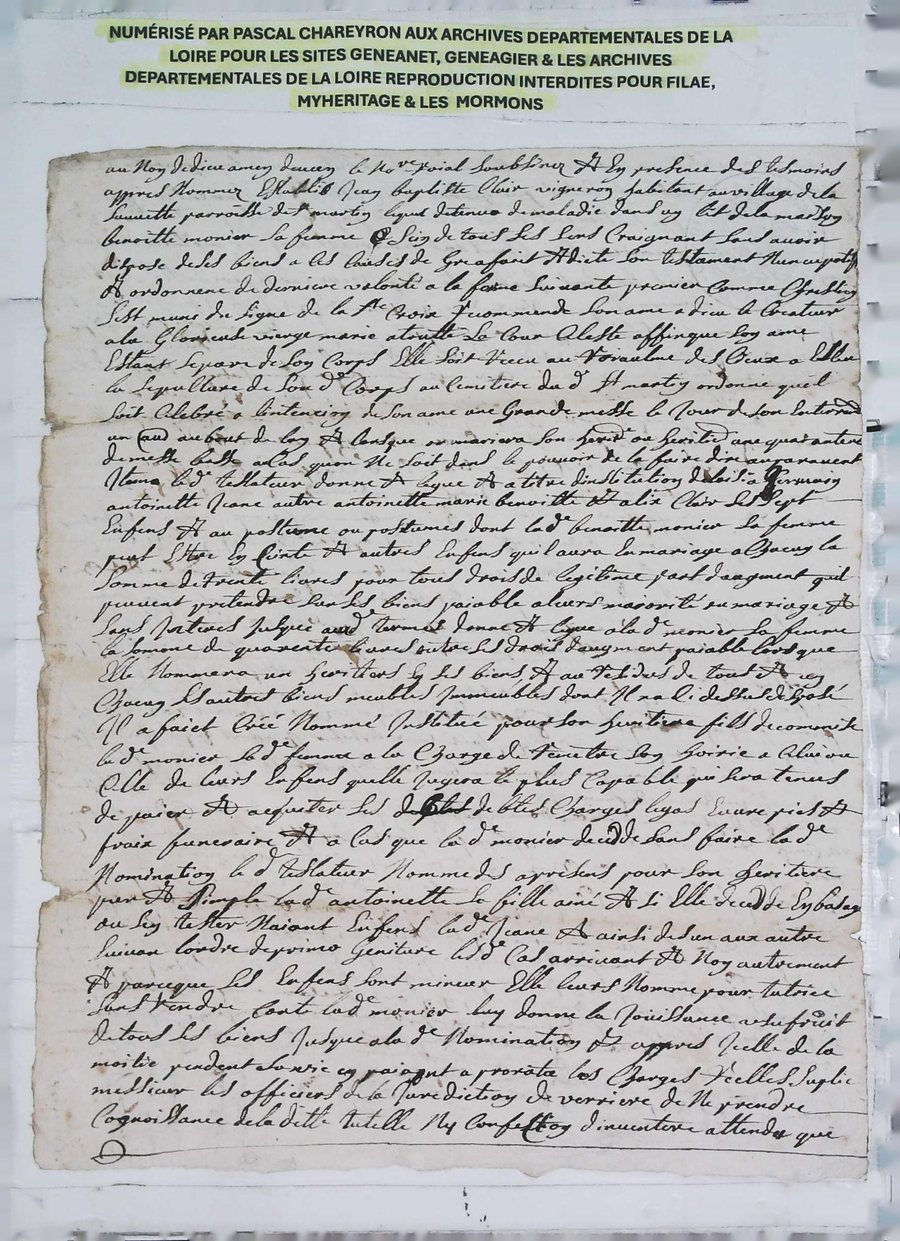 NUMÉRISÉ PAR PASCAL CHAREYRON AUX ARCHIVES DEPARTEMENTALES DE LA
LOIRE POUR LES SITES GENEANET, GENEAGIER & LES ARCHIVES
DEPARTEMENTALES DE LA LOIRE REPRODUCTION INTERDITES POUR FILAE,
MYHERITAGE & LES MORMONS
au Nom de dieu amen devan le No.re roial soubsiné & En presence des tesmoins
appres Nommez Establit Jean baptiste Clair vigneron habitant au village de la
parroisse de st martin lequel detenue de maladie dans un lit de la maison
benoitte monier sa femme & sein de tous ses sens Craignant sans avoir
dispose de ses biens a les causes de Gre a fait & dicte son testament Nuncupatif
& ordonnene de derniere volonté a la forme suivante premier comme Chrestien
sest muni du signe de la ste Croix recommende son ame a dieu le Createur
a la Glorieuse vierge marie a toutte la Cour Celeste affinque son ame
Estant separe de son Corps Elle soit receu au roiaulme des Cieux a Esleu
la sepulture de son d Corps au Cimetiere du d St martin ordonne quil
soit Celebré a lentencion de son ame une Grande messe le Jour de son Enterre
un au bout de lan & lorsque on mariera son herid ou heritie une quarantene
de messe basse au Cas quon Ne soit dans le pouvoir de la faire dire auparavent
Item led testateur donne & legue & a titre dinstitution Germain
antoinette Jeane autre antoinette marie benoitte & alix Clair ses sept
Enfens & au postume ou postumes dont lad benoitte monier sa femme
peut Estre En Ceinte & autres Enfens quil aura En mariage a Chacun la
somme de trente livres pour tous drois de legitime part daugment quil
peuvent pretendre sur ses biens paiable a leurs majorité ou mariage &
sans Interes Jusque aud termes donne & legue a la d monier sa femme
la somme de quarente livres outre ses drois daugment paiable lorsque
Elle Nommera un heritiers En ses biens & au residus de tous & un
Chacun ses autres biens meubles Immeubles dont Il na Ci dessus disposé
Il a faict Créé Nommé Institué pour son heritiere fils decommise
la d monier sa d femme a la Charge de remetre son hoirie a Celui ou
Celle de leurs Enfens quelle Jugera le plus Capable qui sera tenus
de paier & acquiter ses debtes Charges legas Euvre pies &
fraix funeraire & a Cas que la d monier decedde sans faire la d
Nomination le d testateur Nomme des apresens pour son heritiere
pur & simple la d antoinette sa fille ainé & si Elle decedde En bas age
ou sen tester Naiant Enfens la d Jeane & ainsi de lun aux autre
suivan lordre de primo Geniture lesd Cas arrivant & Non autrement
& parceque ses Enfens sont mineur Elle leurs Nomme pour tutrice
sans rendre Conte lad monier luy donne la Jouissance usufruit
de tous ses biens Jusque a la d Nomination & appres Icelle de la
moitie pendent sa vie en paiant a prorata les Charges Icelles suplie
messieur les officiers de la Jurediction de verriere de Ne prendre
Cognoissance de la ditte tutelle Ny Confection dinventere attendu que